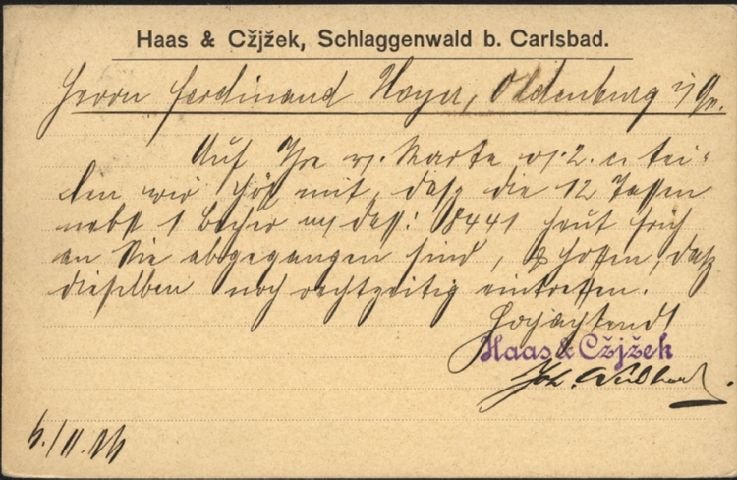 Haas & Cžjžek, Schlaggenwald b. Carlsbad.
Herrn Ferdinand Hoyer, Oldenburg i/Gr.
Auf Ihre w. Karte v. 2. cr tei-
len wir höfl mit, dass die 12 Tassen
nebst 1 Becher m/ Dess: 8441 heut früh
an Sie abgegangen sind, & hoffen, dass
dieselben noch rechtzeitig eintreffen.
Hochachtend
Haas & Cžjžek